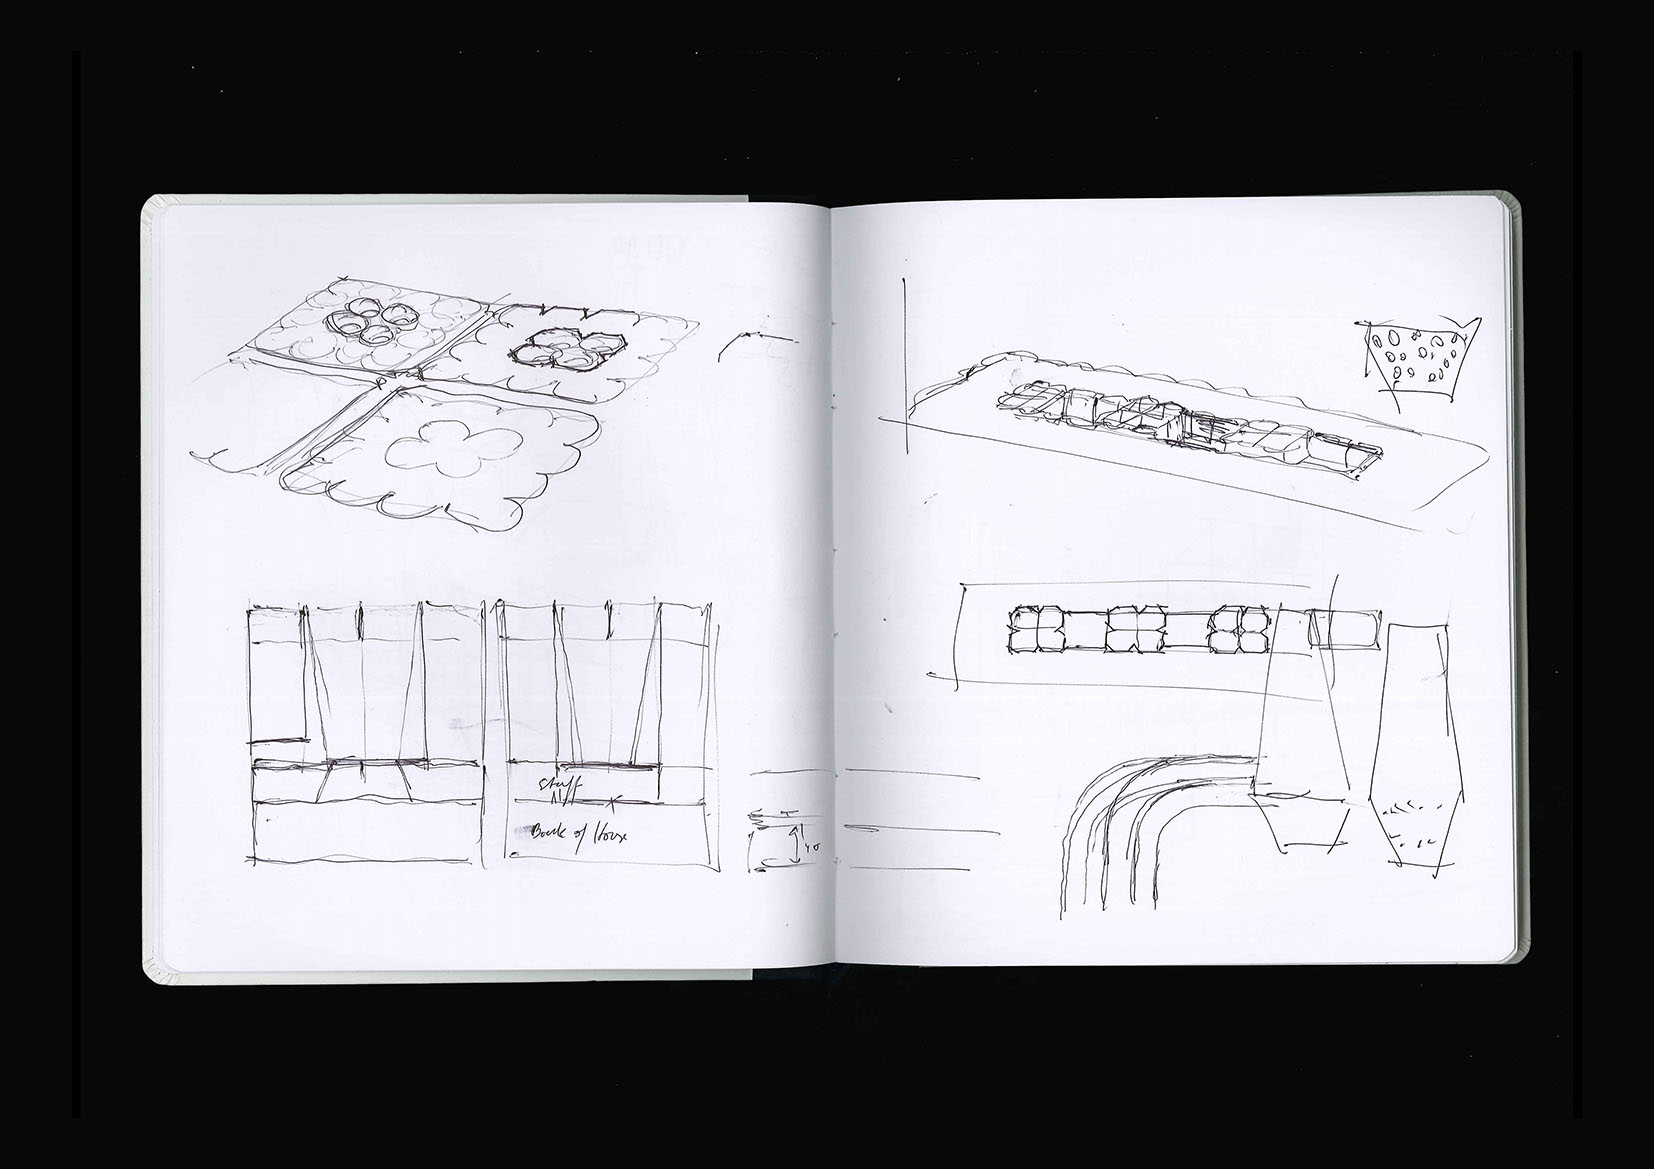 Staff
Back of House